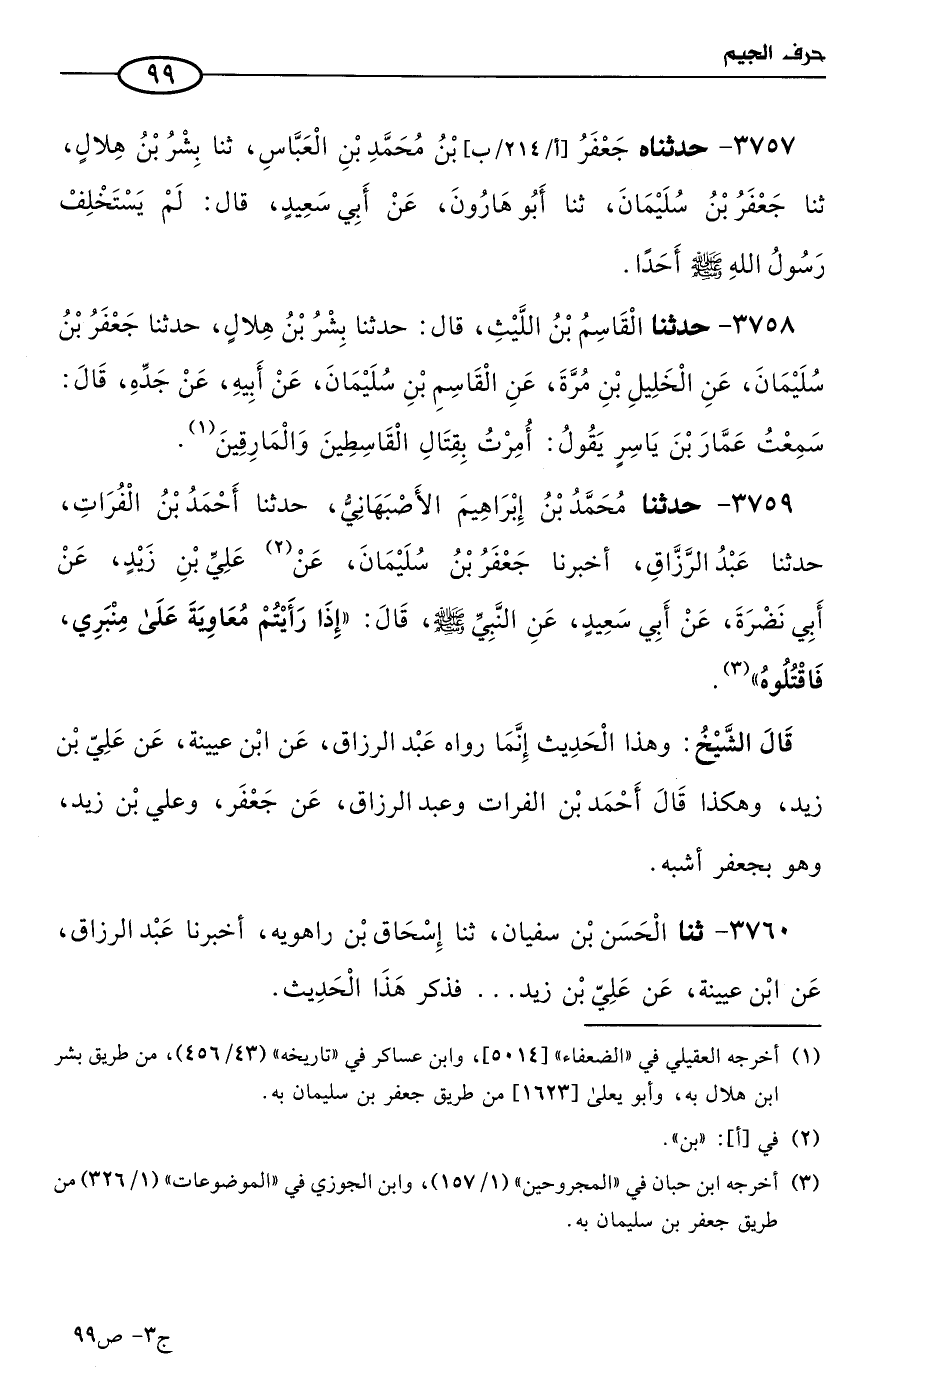 حرف الجيم
٩٩
٣٧٥٧- حدثناه جَعْفَرُ [أ/٢١٤/ب] بْنُ مُحَمَّدِ بْنِ الْعَبَّاسِ، ثنا بِشْرُ بْنُ هِلالٍ،
ثنا جَعْفَرُ بْنُ سُلَيْمَانَ، ثنا أَبُو هَارُونَ، عَنْ أَبِي سَعِيدٍ، قال: لَمْ يَسْتَخْلِفْ
رَسُولُ اللهِ ﷺ أَحَدًا.
٣٧٥٨- حدثنا الْقَاسِمُ بْنُ اللَّيْثِ، قال: حدثنا بِشْرُ بْنُ هِلالٍ، حدثنا جَعْفَرُ بْنُ
سُلَيْمَانَ، عَنِ الْخَلِيلِ بْنِ مُرَّةَ، عَنِ الْقَاسِمِ بْنِ سُلَيْمَانَ، عَنْ أَبِيهِ، عَنْ جَدِّهِ، قَالَ:
سَمِعْتُ عَمَّارَ بْنَ يَاسِرٍ يَقُولُ: أُمِرْتُ بِقِتَالِ الْقَاسِطِينَ وَالْمَارِقِينَ(١).
٣٧٥٩- حدثنا مُحَمَّدُ بْنُ إِبْرَاهِيمَ الأَصْبَهَانِيُّ، حدثنا أَحْمَدُ بْنُ الْفُرَاتِ،
حدثنا عَبْدُ الرَّزَّاقِ، أخبرنا جَعْفَرُ بْنُ سُلَيْمَانَ، عَنْ(٢) عَلِيِّ بْنِ زَيْدٍ، عَنْ
أَبِي نَضْرَةَ، عَنْ أَبِي سَعِيدٍ، عَنِ النَّبِيِّ ﷺ، قَالَ: «إِذَا رَأَيْتُمْ مُعَاوِيَةَ عَلَىٰ مِنْبَرِي،
فَاقْتُلُوهُ»(٣).
قَالَ الشَّيْخُ: وهذا الْحَدِيث إِنَّمَا رواه عَبْد الرزاق، عَن ابْن عيينة، عَن عَلِيّ بْن
زيد، وهكذا قَالَ أَحْمَد بْن الفرات وعبد الرزاق، عَن جَعْفَر، وعلي بْن زيد،
وهو بجعفر أشبه.
٣٧٦٠- ثنا الْحَسَن بْن سفيان، ثنا إِسْحَاق بْن راهويه، أخبرنا عَبْد الرزاق،
عَن ابْن عيينة، عَن عَلِيّ بْن زيد... فذكر هَذَا الْحَدِيث.
(١) أخرجه العقيلي في «الضعفاء» [٥٠١٤]، وابن عساكر في «تاريخه» (٤٥٦/٤٣)، من طريق بشر
ابن هلال به، وأبو يعلىٰ [١٦٢٣] من طريق جعفر بن سليمان به.
(٢) في [أ]: «بن».
(٣) أخرجه ابن حبان في «المجروحين» (١/١٥٧)، وابن الجوزي في «الموضوعات» (١/٣٢٦) من
طريق جعفر بن سليمان به.
ج٣- ص٩٩